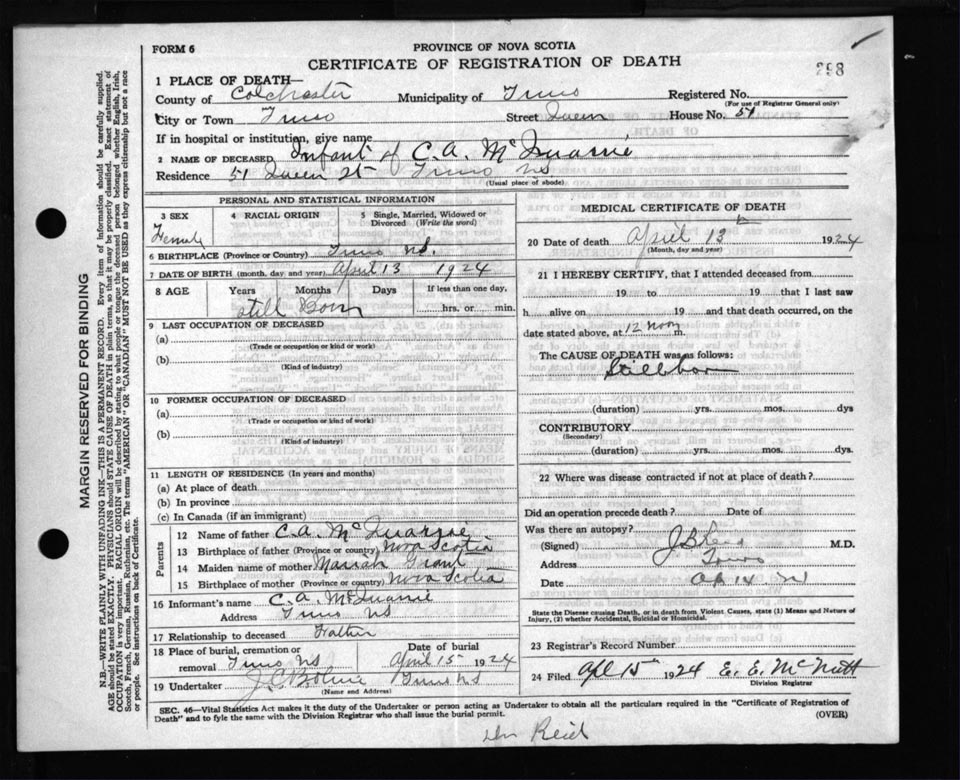 FORM 6
PROVINCE OF NOVA SCOTIA
CERTIFICATE OF REGISTRATION OF DEATH
298
1 PLACE OF DEATH—
County of Colchester Municipality of Truro Registered No.
(For use of Registrar General only)
City or Town Truro Street Queen House No. 51
If in hospital or institution, give name
2 NAME OF DECEASED Infant of C. A. McQuarrie
Residence 51 Queen St Truro NS
(Usual place of abode)
PERSONAL AND STATISTICAL INFORMATION
3 SEX Female
4 RACIAL ORIGIN
5 Single, Married, Widowed or Divorced (Write the word)
6 BIRTHPLACE (Province or Country) Truro NS.
7 DATE OF BIRTH (month, day and year) April 13 1924
8 AGE Years Months Days If less than one day,
Still Born hrs. or min.
9 LAST OCCUPATION OF DECEASED
(a)
(Trade or occupation or kind of work)
(b)
(Kind of industry)
10 FORMER OCCUPATION OF DECEASED
(a)
(Trade or occupation or kind of work)
(b)
(Kind of industry)
11 LENGTH OF RESIDENCE (In years and months)
(a) At place of death
(b) In province
(c) In Canada (if an immigrant)
Parents
12 Name of father C. A. McQuarrie
13 Birthplace of father (Province or country) Nova Scotia
14 Maiden name of mother Mariah Grant
15 Birthplace of mother (Province or country) Nova Scotia
16 Informant's name C. A. McQuarrie
Address Truro NS
17 Relationship to deceased Father
18 Place of burial, cremation or removal Truro NS
Date of burial April 15 1924
19 Undertaker Truro NS
(Name and Address)
MEDICAL CERTIFICATE OF DEATH
20 Date of death April 13 1924
(Month, day and year)
21 I HEREBY CERTIFY, that I attended deceased from
19 to 19 that I last saw
h alive on 19 and that death occurred, on
date stated above, at 12 noon m.
The CAUSE OF DEATH was as follows:
Stillborn
(duration) yrs. mos. dys
CONTRIBUTORY
(Secondary)
(duration) yrs. mos. dys.
22 Where was disease contracted if not at place of death?
Did an operation precede death? Date of
Was there an autopsy?
(Signed) M.D.
Address Truro
Date Ap 14
State the Disease causing Death, or in death from Violent Causes, state (1) Means and Nature of
Injury, (2) whether Accidental, Suicidal or Homicidal.
23 Registrar's Record Number
24 Filed Apl 15th 1924 E. E. McNutt
Division Registrar
SEC. 46—Vital Statistics Act makes it the duty of the Undertaker or person acting as Undertaker to obtain all the particulars required in the "Certificate of Registration of
Death" and to fyle the same with the Division Registrar who shall issue the burial permit.
(OVER)
Reid
MARGIN RESERVED FOR BINDING
N.B.—WRITE PLAINLY WITH UNFADING INK—THIS IS A PERMANENT RECORD. Every item of information should be carefully supplied.
AGE should be stated EXACTLY. PHYSICIANS should STATE CAUSE OF DEATH in plain terms, so that it may be properly classified. Exact statement of
OCCUPATION is very important. RACIAL ORIGIN will be described by stating to what people or tongue the deceased person belonged whether English, Irish,
Scotch, French, German, Russian, Ruthenian, etc. The terms "AMERICAN" OR "CANADIAN" MUST NOT BE USED as they express citizenship but not a race
or people. See instructions on back of Certificate.